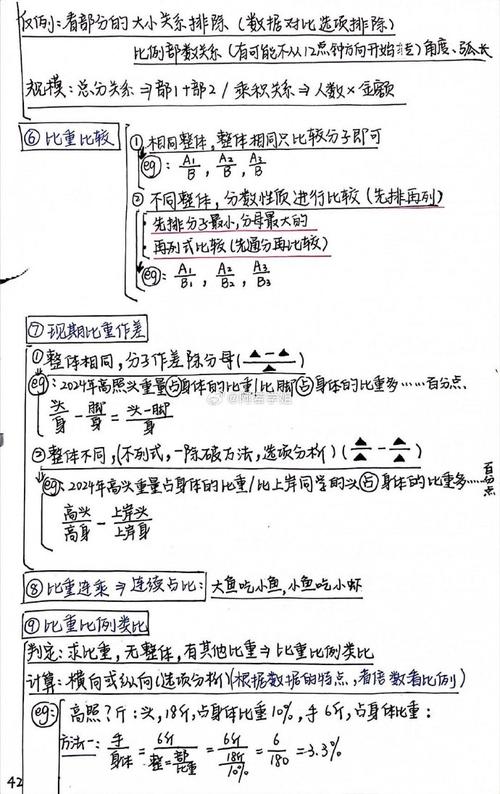 仅例:看部分的大小关系排除(数据对比选项排除)
比例部数关系(有可能不从12点钟方向开始 )角度、弧长
规模:总分关系⇒部1+部2 / 乘积关系⇒人数×金额
⑥ 比重比较
① 相同整体,整体相同只比较分子即可
eg: A1/B, A2/B, A3/B
② 不同整体,分数性质进行比较(先排再列)
先排分子最小,分母最大的
再列式比较(先通分再比较)
eg: A1/B1, A2/B2, A3/B3
⑦ 现期比重作差
①整体相同,分子作差除分母(▲-▲/▲)
eg:2024年高照头重量占身体的比重/比脚占身体的比重多……百分点.
头/身 - 脚/身 = 头-脚/身
②整体不同,(不列式,一除破方法,选项分析)(▲/▲ - ▲/▲)
eg:2024年高头重量占身体的比重/比上岸同学的头占身体的比重多……百分点
高头/高身 - 上岸头/上岸身
⑧ 比重连乘⇒连续占比:大鱼吃小鱼,小鱼吃小虾
⑨ 比重比例类比
判定:求比重,无整体,有其他比重⇒比重比例类比
计算:横向或纵向(选项分析)(根据数据的特点,看倍数看比例)
eg:高照?斤:头,18斤,占身体比重10%,手6斤,占身体比重:
方法一:手/身体 = 6斤/整=部/比重 = 6斤/18斤/10% = 6/180 = 3.3%
42